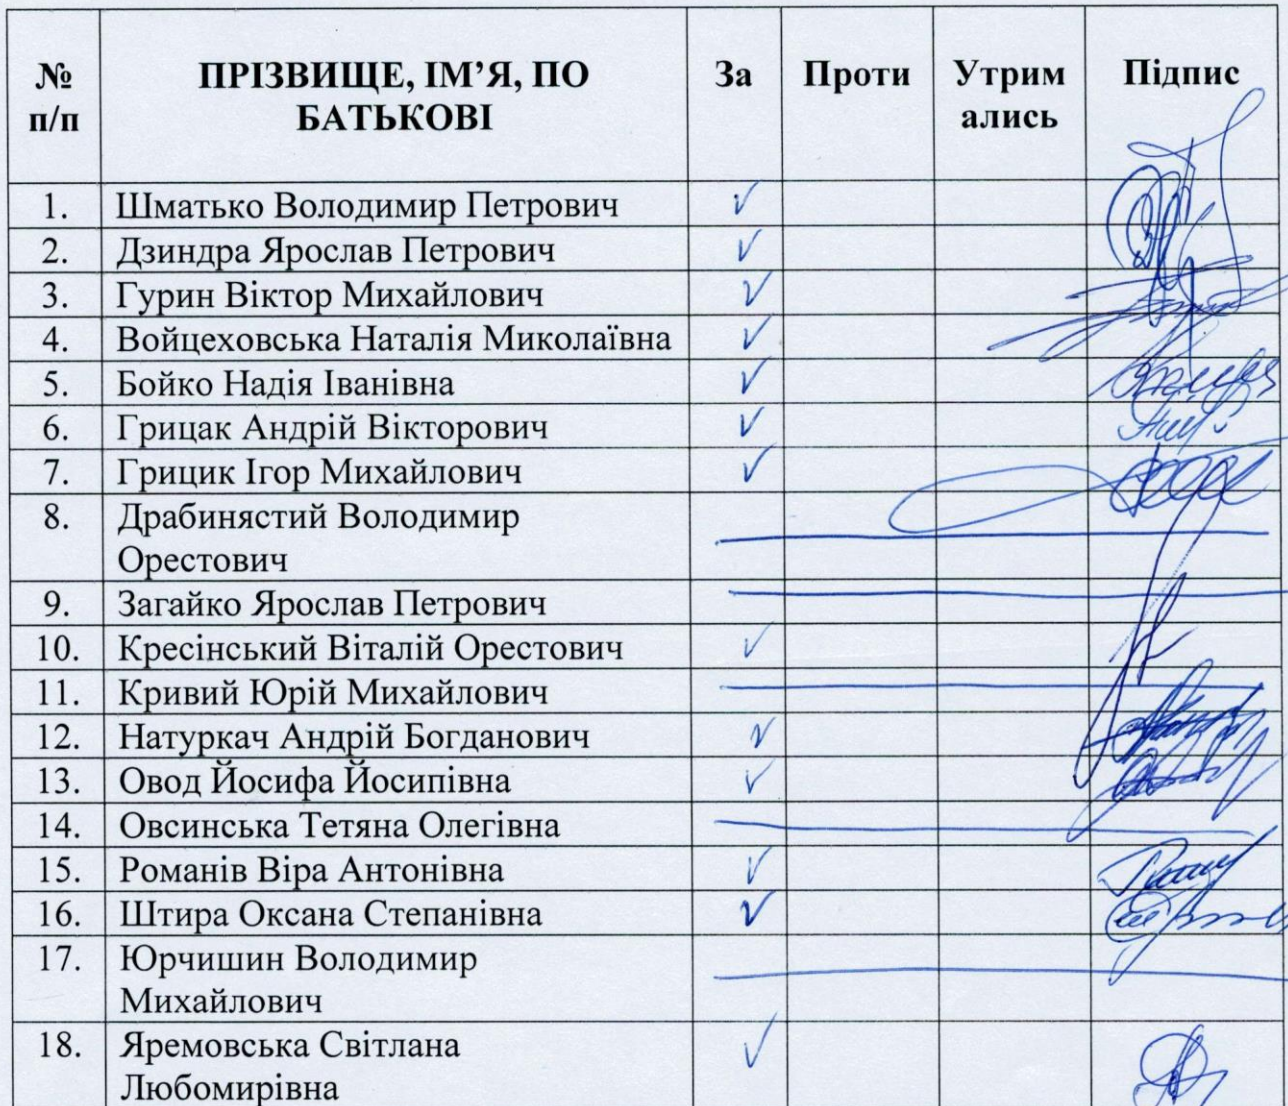 № п/п ПРІЗВИЩЕ, ІМ’Я, ПО БАТЬКОВІ За Проти Утрим ались Підпис
1. Шматько Володимир Петрович
2. Дзиндра Ярослав Петрович
3. Гурин Віктор Михайлович
4. Войцеховська Наталія Миколаївна
5. Бойко Надія Іванівна
6. Грицак Андрій Вікторович
7. Грицик Ігор Михайлович
8. Драбинястий Володимир
Орестович
9. Загайко Ярослав Петрович
10. Кресінський Віталій Орестович
11. Кривий Юрій Михайлович
12. Натуркач Андрій Богданович
13. Овод Йосифа Йосипівна
14. Овсинська Тетяна Олегівна
15. Романів Віра Антонівна
16. Штира Оксана Степанівна
17. Юрчишин Володимир
Михайлович
18. Яремовська Світлана
Любомирівна